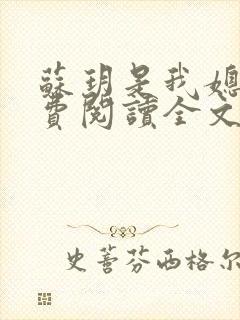 蘇玥是我媳
費閱讀全文
史蒈芬西格尔